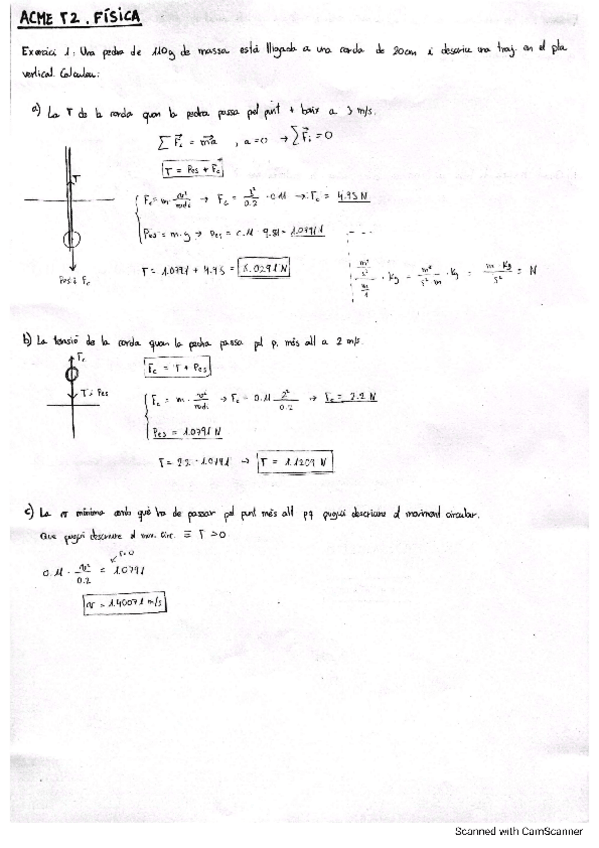 ACME T2. FÍSICA
Exercici 1: Una pedra de 110g de massa està lligada a una corda de 20cm i descriu una traj. en el pla
vertical. Calculeu:
a) La T de la corda quan la pedra passa pel punt + baix a 3 m/s.
∑F⃗ᵢ = m⃗a , a=0 → ∑F⃗ᵢ = 0
T = Pes + Fc
T
Fc = m · v²/radi → Fc = 3²/0.2 · 0.11 → Fc = 4.95 N
Pes = m·g → Pes = 0.11 · 9.81 = 1.0791 N
Pes i Fc
T = 1.0791 + 4.95 = 6.0291 N
m²/s² / m/1 · Kg = m²/s² m · Kg = m · Kg/s² = N
b) La tensió de la corda quan la pedra passa pel p. més alt a 2 m/s.
Fc
Fc = T + Pes
T i Pes
Fc = m · v²/radi → Fc = 0.11 2²/0.2 → Fc = 2.2 N
Pes = 1.0791 N
T = 2.2 - 1.0791 → T = 1.1209 N
c) La v mínima amb què ha de passar pel punt més alt pq pugui descriure el moviment circular.
Que pugui descriure el mov. circ. ≡ T > 0
T=0
0.11 · v²/0.2 = 1.0791
v = 1.40071 m/s
Scanned with CamScanner